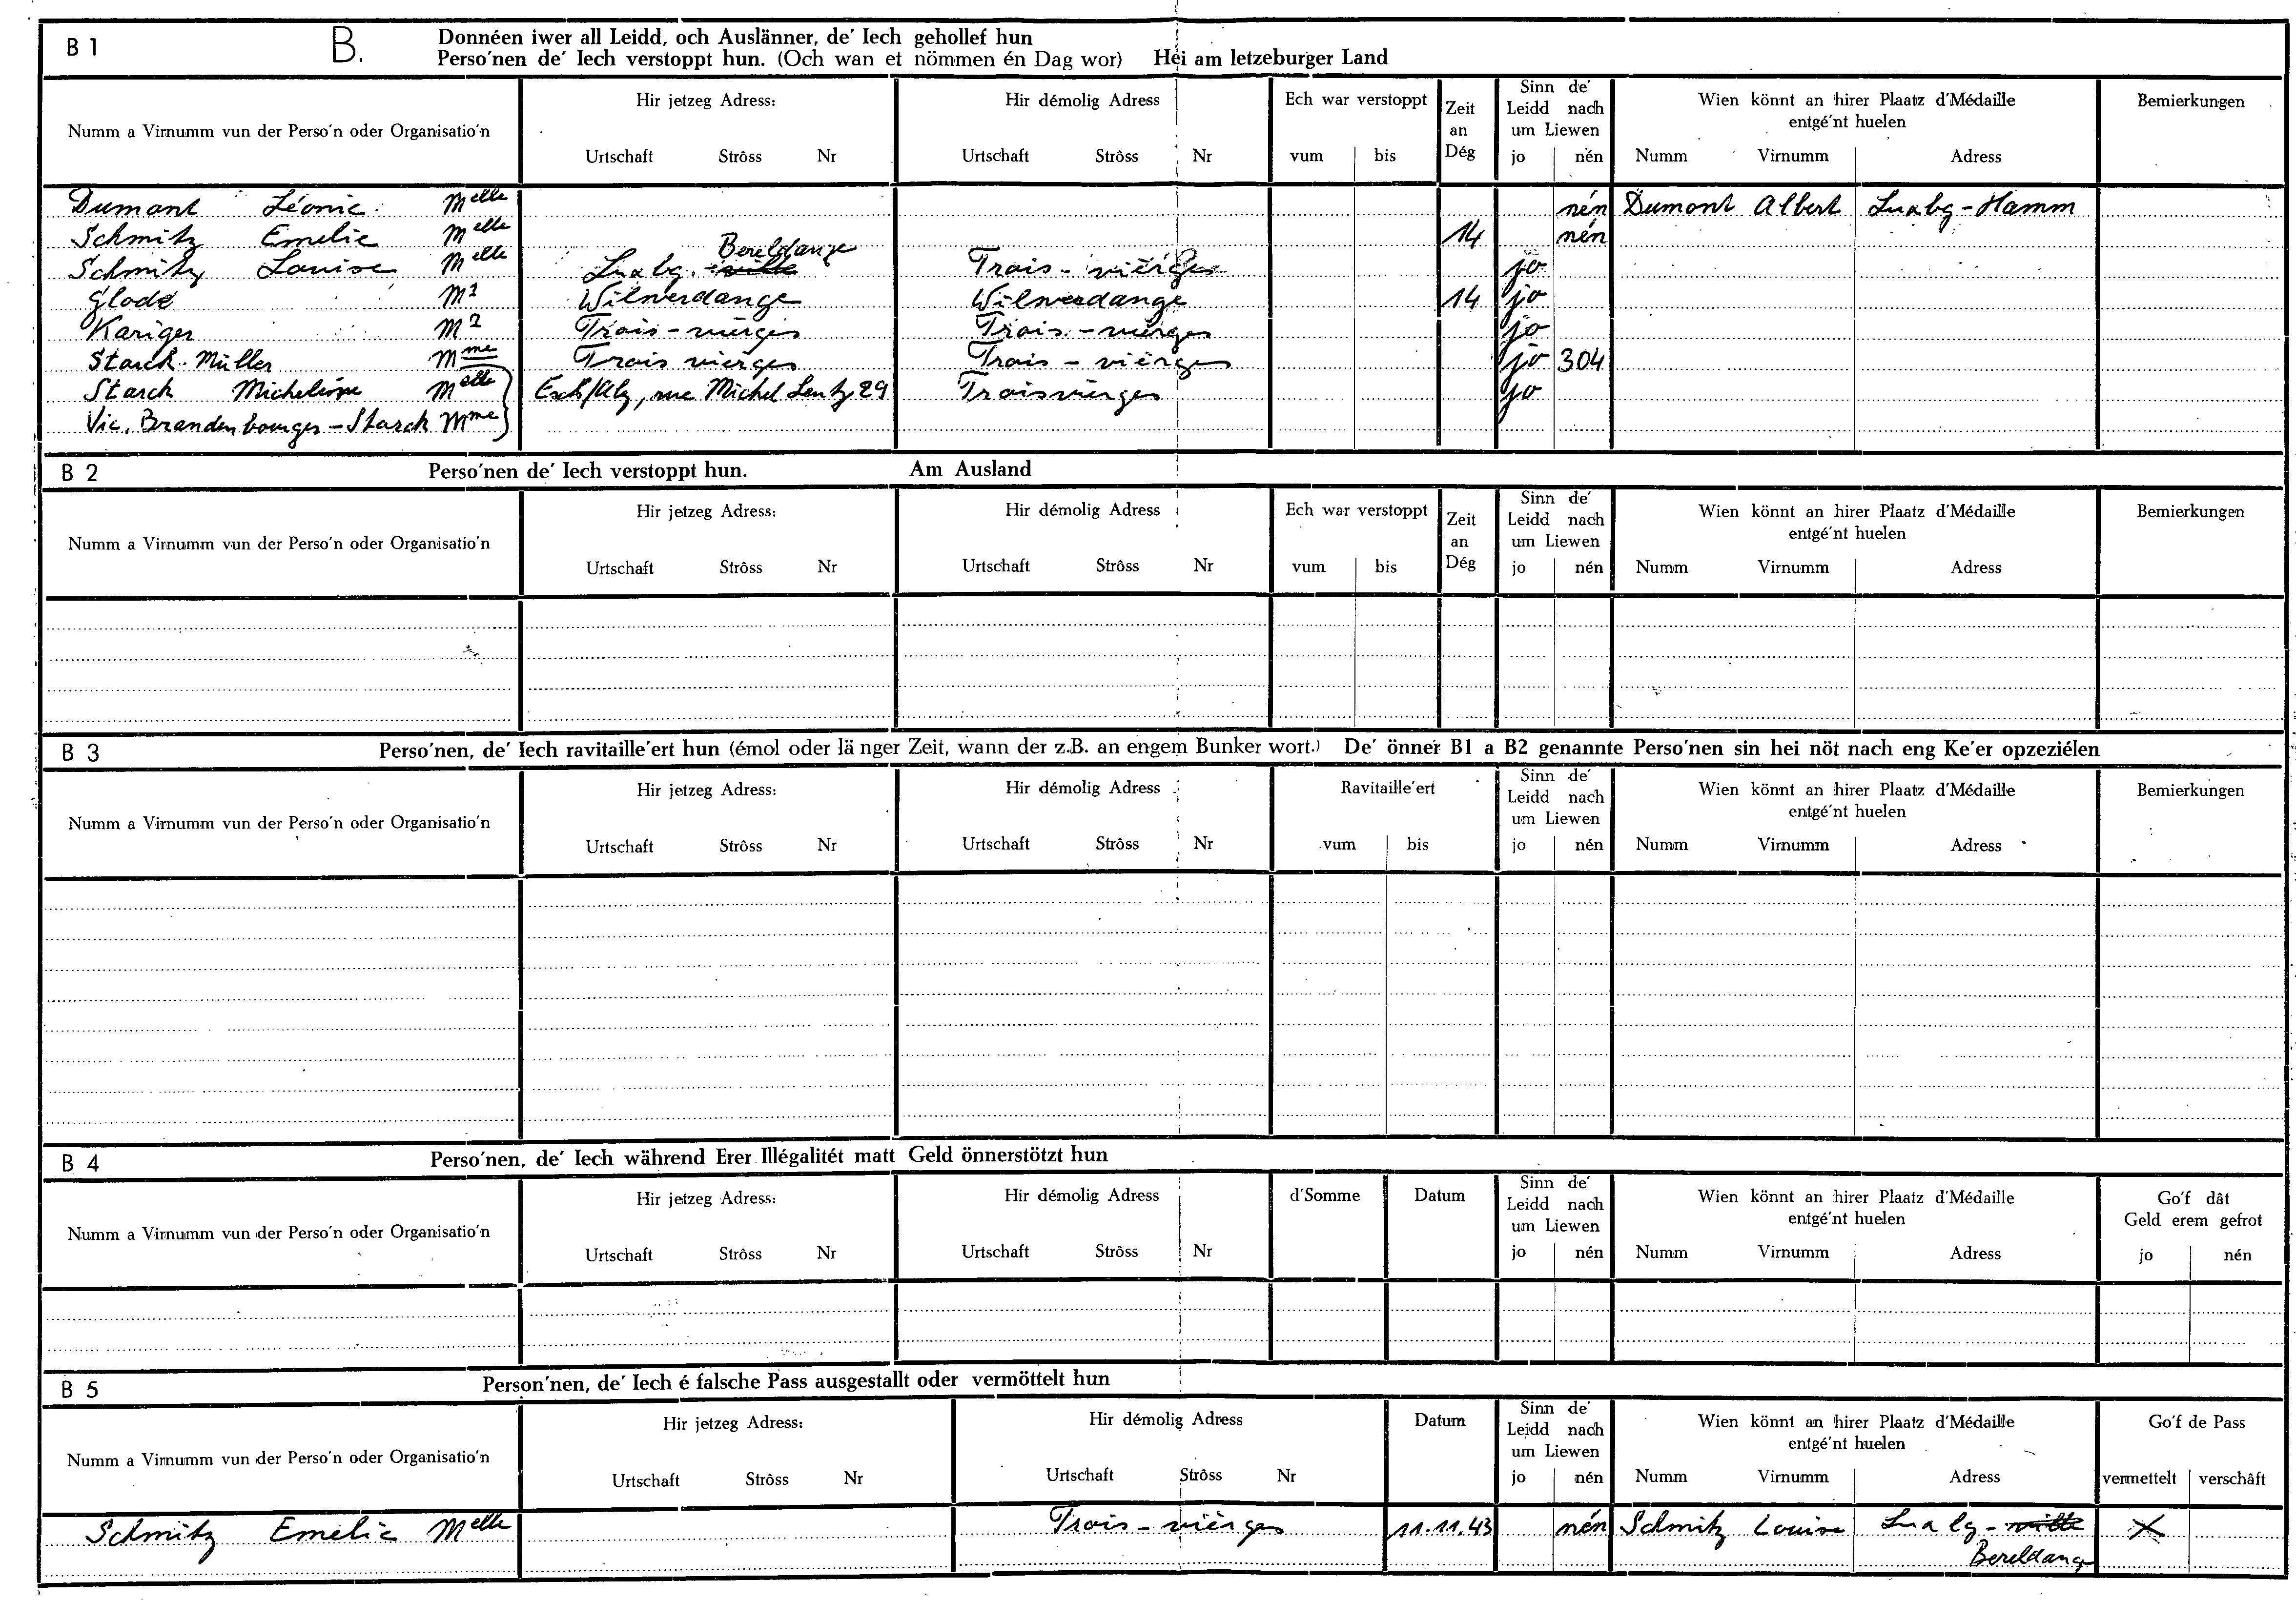 B 1 B. Donnéen iwer all Leidd, och Auslänner, de' Iech gehollef hun
Perso'nen de' Iech verstoppt hun. (Och wan et nömmen én Dag wor) Héi am letzeburger Land
Numm a Virnumm vun der Perso'n oder Organisatio'n
Hir jetzeg Adress:
Urtschaft Strôss Nr
Hir démolig Adress
Urtschaft Strôss Nr
Ech war verstoppt
vum bis
Zeit
an
Dég
Sinn de'
Leidd nach
um Liewen
jo nén
Wien könnt an hirer Plaatz d'Médaille
entgé'nt huelen
Numm Virnumm Adress
Bemierkungen
Dumont Léonie Melle nén Dumont Albert Luxbg-Hamm
Schmitz Emelie Melle 14 nén
Bereldange
Schmitz Louise Melle Luxbg.-ville Trois-vièrges jo
Glodé Mr Wilwerdange Wilwerdange 14 jo
Kariger Mr Trois-vièrges Trois-vièrges jo
Starck-Müller Mme Trois vièrges Trois-vièrges jo 304
Starck Melle Esch/Alz, rue Michel Lentz 29 Troisvièrges jo
Vic. Brandenbourger-Starck Mme
B 2 Perso'nen de' Iech verstoppt hun. Am Ausland
Numm a Virnumm vun der Perso'n oder Organisatio'n
Hir jetzeg Adress:
Urtschaft Strôss Nr
Hir démolig Adress
Urtschaft Strôss Nr
Ech war verstoppt
vum bis
Zeit
an
Dég
Sinn de'
Leidd nach
um Liewen
jo nén
Wien könnt an hirer Plaatz d'Médaille
entgé'nt huelen
Numm Virnumm Adress
Bemierkungen
B 3 Perso'nen, de' Iech ravitaille'ert hun (émol oder länger Zeit, wann der z.B. an engem Bunker wort.) De' önner B1 a B2 genannte Perso'nen sin hei nöt nach eng Ke'er opzeziélen
Numm a Virnumm vun der Perso'n oder Organisatio'n
Hir jetzeg Adress:
Urtschaft Strôss Nr
Hir démolig Adress
Urtschaft Strôss Nr
Ravitaille'ert
vum bis
Sinn de'
Leidd nach
um Liewen
jo nén
Wien könnt an hirer Plaatz d'Médaille
entgé'nt huelen
Numm Virnumm Adress
Bemierkungen
B 4 Perso'nen, de' Iech während Erer Illégalitét matt Geld önnerstötzt hun
Numm a Virnumm vun der Perso'n oder Organisatio'n
Hir jetzeg Adress:
Urtschaft Strôss Nr
Hir démolig Adress
Urtschaft Strôss Nr
d'Somme
Datum
Sinn de'
Leidd nach
um Liewen
jo nén
Wien könnt an hirer Plaatz d'Médaille
entgé'nt huelen
Numm Virnumm Adress
Go'f dât
Geld erem gefrot
jo nén
B 5 Person'nen, de' Iech é falsche Pass ausgestallt oder vermöttelt hun
Numm a Virnumm vun der Perso'n oder Organisatio'n
Hir jetzeg Adress:
Urtschaft Strôss Nr
Hir démolig Adress
Urtschaft Strôss Nr
Datum
Sinn de'
Leidd nach
um Liewen
jo nén
Wien könnt an hirer Plaatz d'Médaille
entgé'nt huelen
Numm Virnumm Adress
Go'f de Pass
vermettelt verschâft
Schmitz Emelie Melle Trois-vièrges 11.11.43 nén Schmitz Louise Luxbg-ville X
Bereldange